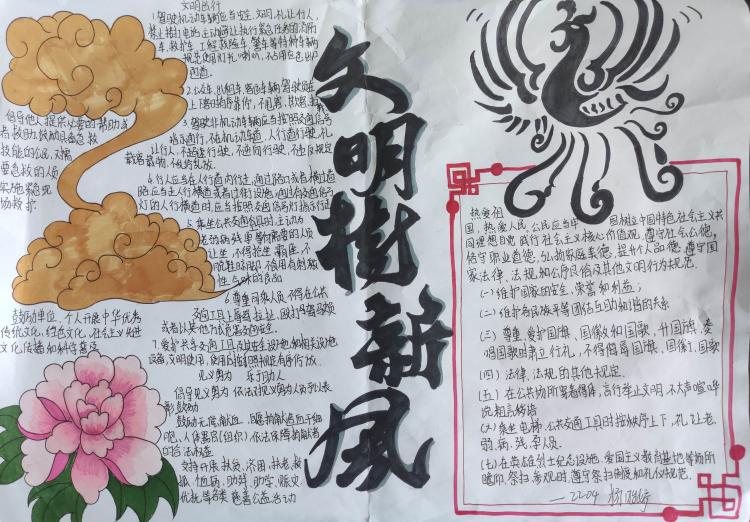 文明出行
1.驾驶机动车辆应当安全、文明，礼让行人，
禁止接打电话，主动避让执行紧急任务的消防
车、救护车、工程救险车、警车等特种车辆
规范使用灯光、喇叭，不占用应急出口
2.公交、出租车、客运车辆驾驶员在
3.驾驶非机动车应当按照交通信号
指示通行，不在机动车道、人行道行驶，礼
让行人，不超速行驶，不逆向行驶，不违反规定
4.行人应当在人行道内行走，通过路口或者横过道
路应当走人行横道或者过街设施，通过有交通信号
灯的人行横道时，应当按照交通信号灯指示通过
5.乘坐公共交通工具时，主动为
老弱病残孕等需要的人员
让坐，不得抢坐、霸座，不
性气味的食品
6.尊重司乘人员，不得在公共
交通工具上辱骂、拉扯、殴打驾驶员
或者以其他方式危害交通安全。
7.爱护共享交通工具及其安全设施和相关设施
设备，文明使用，使用后按照规定有序停放。
见义勇为 乐于助人
倡导见义勇为，依法规见义勇为人员以表
彰鼓励
鼓励无偿献血，自愿捐献造血干细
胞、人体器官(组织)，依法保障捐献者
的合法权益
支持开展扶贫、济困、扶老、救
孤、恤病、助残、助学、赈灾、
优抚等各类慈善公益活动
倡导他人提供必要的帮助或
者救助，鼓励具备急救
技能的公民，对需
要急救的人员
实施紧急现
场救护
鼓励单位、个人开展中华优秀
传统文化、红色文化、社会主义先进
文化传播和科学普及
文明树新风
热爱祖
国、热爱人民，公民应当牢固树立中国特色社会主义共
同理想自觉践行社会主义核心价值观，遵守社会公德，
恪守职业道德，弘扬家庭美德，提升个人品德，遵守国
家法律、法规和公序良俗及其他文明行为规范。
(一)维护国家的安全、荣誉和利益；
(二)维护各民族平等团结互助和谐的关系
(三)尊重、爱护国旗、国徽和国歌，升国旗、奏
唱国歌时肃立行礼，不得侮辱国旗、国徽、国歌
(四)法律、法规的其他规定。
(五)在公共场所穿着得体，言行举止文明，不大声喧哗
说粗言秽语
(六)乘坐电梯、公共交通工具时按秩序上下，礼让老、
弱、病、残、孕人员。
(七)在英雄烈士纪念设施、爱国主义教育基地等场所
瞻仰、祭扫、参观时，遵守祭扫制度和礼仪规范。
—2204